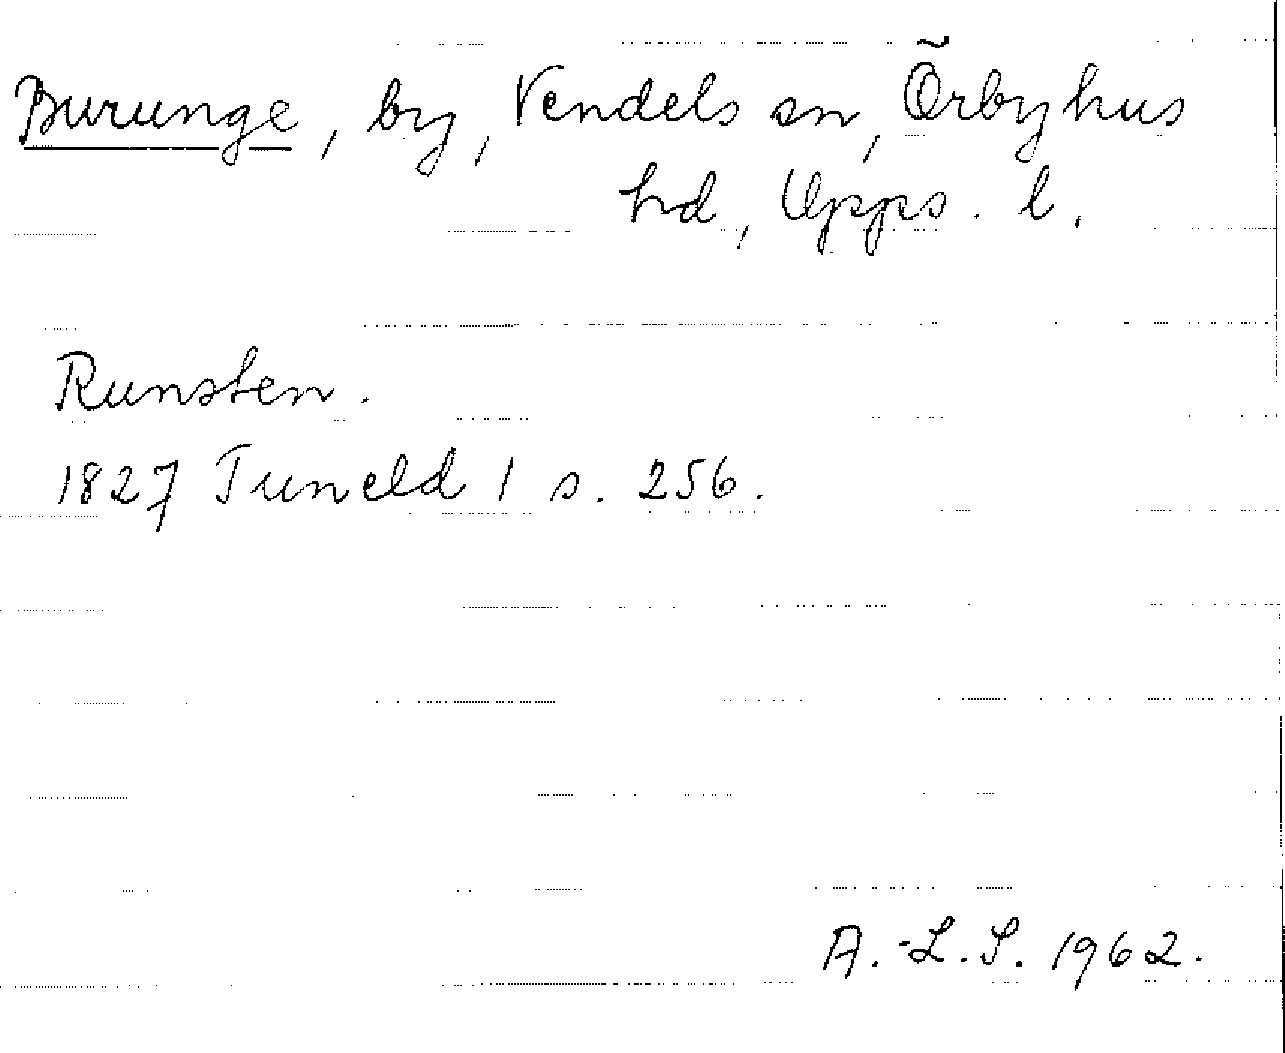 Burunge, by, Vendels sn, Örbyhus
hd, Upps. l.
Runsten.
1827 Tuneld 1 s. 256.
A.-L.S. 1962.